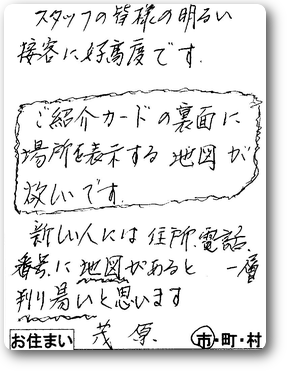 スタッフの皆様の明るい
接客に好高度です.
ご紹介カードの裏面に
場所を表示する地図が
欲しいです.
新しい人には住所.電話.
番号に地図があると 一層
判り易いと思います
お住まい 茂原 市・町・村